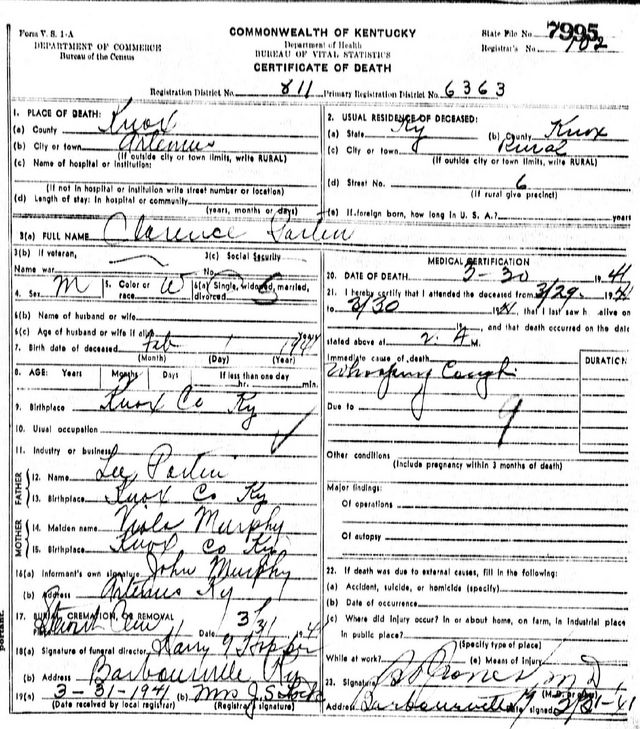 Form V. S. 1-A
DEPARTMENT OF COMMERCE
Bureau of the Census
COMMONWEALTH OF KENTUCKY
Department of Health
BUREAU OF VITAL STATISTICS
CERTIFICATE OF DEATH
State File No. 7995
Registrar's No. 102
Registration District No. 811 Primary Registration District No. 6363
1. PLACE OF DEATH:
(a) County Knox
(b) City or town Artemus
(If outside city or town limits, write RURAL)
(c) Name of hospital or institution:
(If not in hospital or institution write street number or location)
(d) Length of stay: In hospital or community
(years, months or days)
2. USUAL RESIDENCE OF DECEASED:
(a) State Ky (b) County Knox
(c) City or town Rural
(If outside city or town limits, write RURAL)
(d) Street No. 6
(If rural give precinct)
(e) If foreign born, how long in U. S. A.? years
3(a) FULL NAME Clarence
3(b) If veteran, 3(c) Social Security
Name war No.
4. Sex M 5. Color or race W 6(a) Single, widowed, married, divorced S
6(b) Name of husband or wife
6(c) Age of husband or wife if alive years
7. Birth date of deceased Feb 1 1941
(Month) (Day) (Year)
8. AGE: Years Months Days If less than one day
hr. min.
9. Birthplace Knox Co Ky
10. Usual occupation
11. Industry or business
FATHER
12. Name Lee
13. Birthplace Knox Co Ky
MOTHER
14. Maiden name Viola Murphy
15. Birthplace Knox Co Ky
16(a) Informant's own signature John Murphy
(b) Address Artemus Ky
17. BURIAL, CREMATION, OR REMOVAL
Date 3/31 194
18(a) Signature of funeral director Harry
(b) Address Barbourville Ky
19(a) 3-31-1941 (b) Mrs J. S.
(Date received by local registrar) (Registrar's signature)
MEDICAL CERTIFICATION
20. DATE OF DEATH 3-30 1941
21. I hereby certify that I attended the deceased from 3/29 1941
to 3/30 1941, that I last saw h alive on
, and that death occurred on the date
stated above at 2 A M.
Immediate cause of death DURATION
Whooping Cough
Due to 9
Other conditions
(Include pregnancy within 3 months of death)
Major findings:
Of operations
Of autopsy
22. If death was due to external causes, fill in the following:
(a) Accident, suicide, or homicide (specify)
(b) Date of occurrence
(c) Where did injury occur? In or about home, on farm, in industrial place
in public place?
(Specify type of place)
While at work? (e) Means of injury
23. Signature Jones M D
Address Barbourville Ky Date signed 3/31-41
portant.